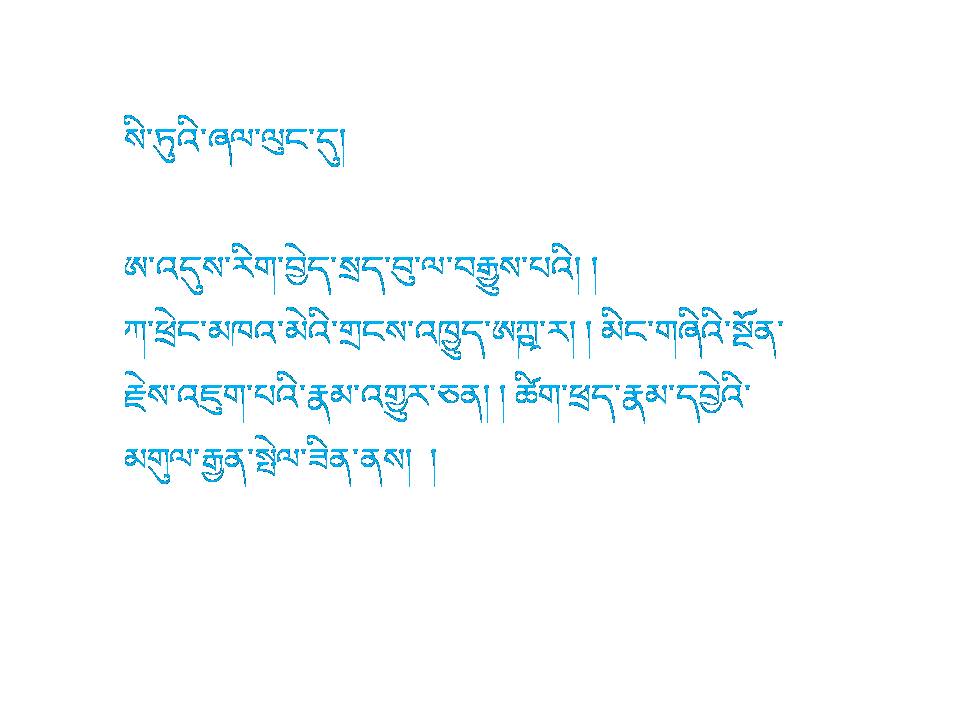 སི་ཏུའི་ཞལ་ལུང་དུ།
ཨ་འདུས་རིག་བྱེད་སྲད་བུ་ལ་བརྒྱུས་པའི། །
ཀ་ཕྲེང་མཁའ་མེའི་གྲངས་འཁྱུད་ཨཀྵ་ར། ། མིང་གཞིའི་སྔོན་
རྗེས་འཇུག་པའི་རྣམ་འགྱུར་ཅན། ། ཚིག་ཕྲད་རྣམ་དབྱེའི་
མགུལ་རྒྱན་སྤེལ་ཟིན་ནས། །